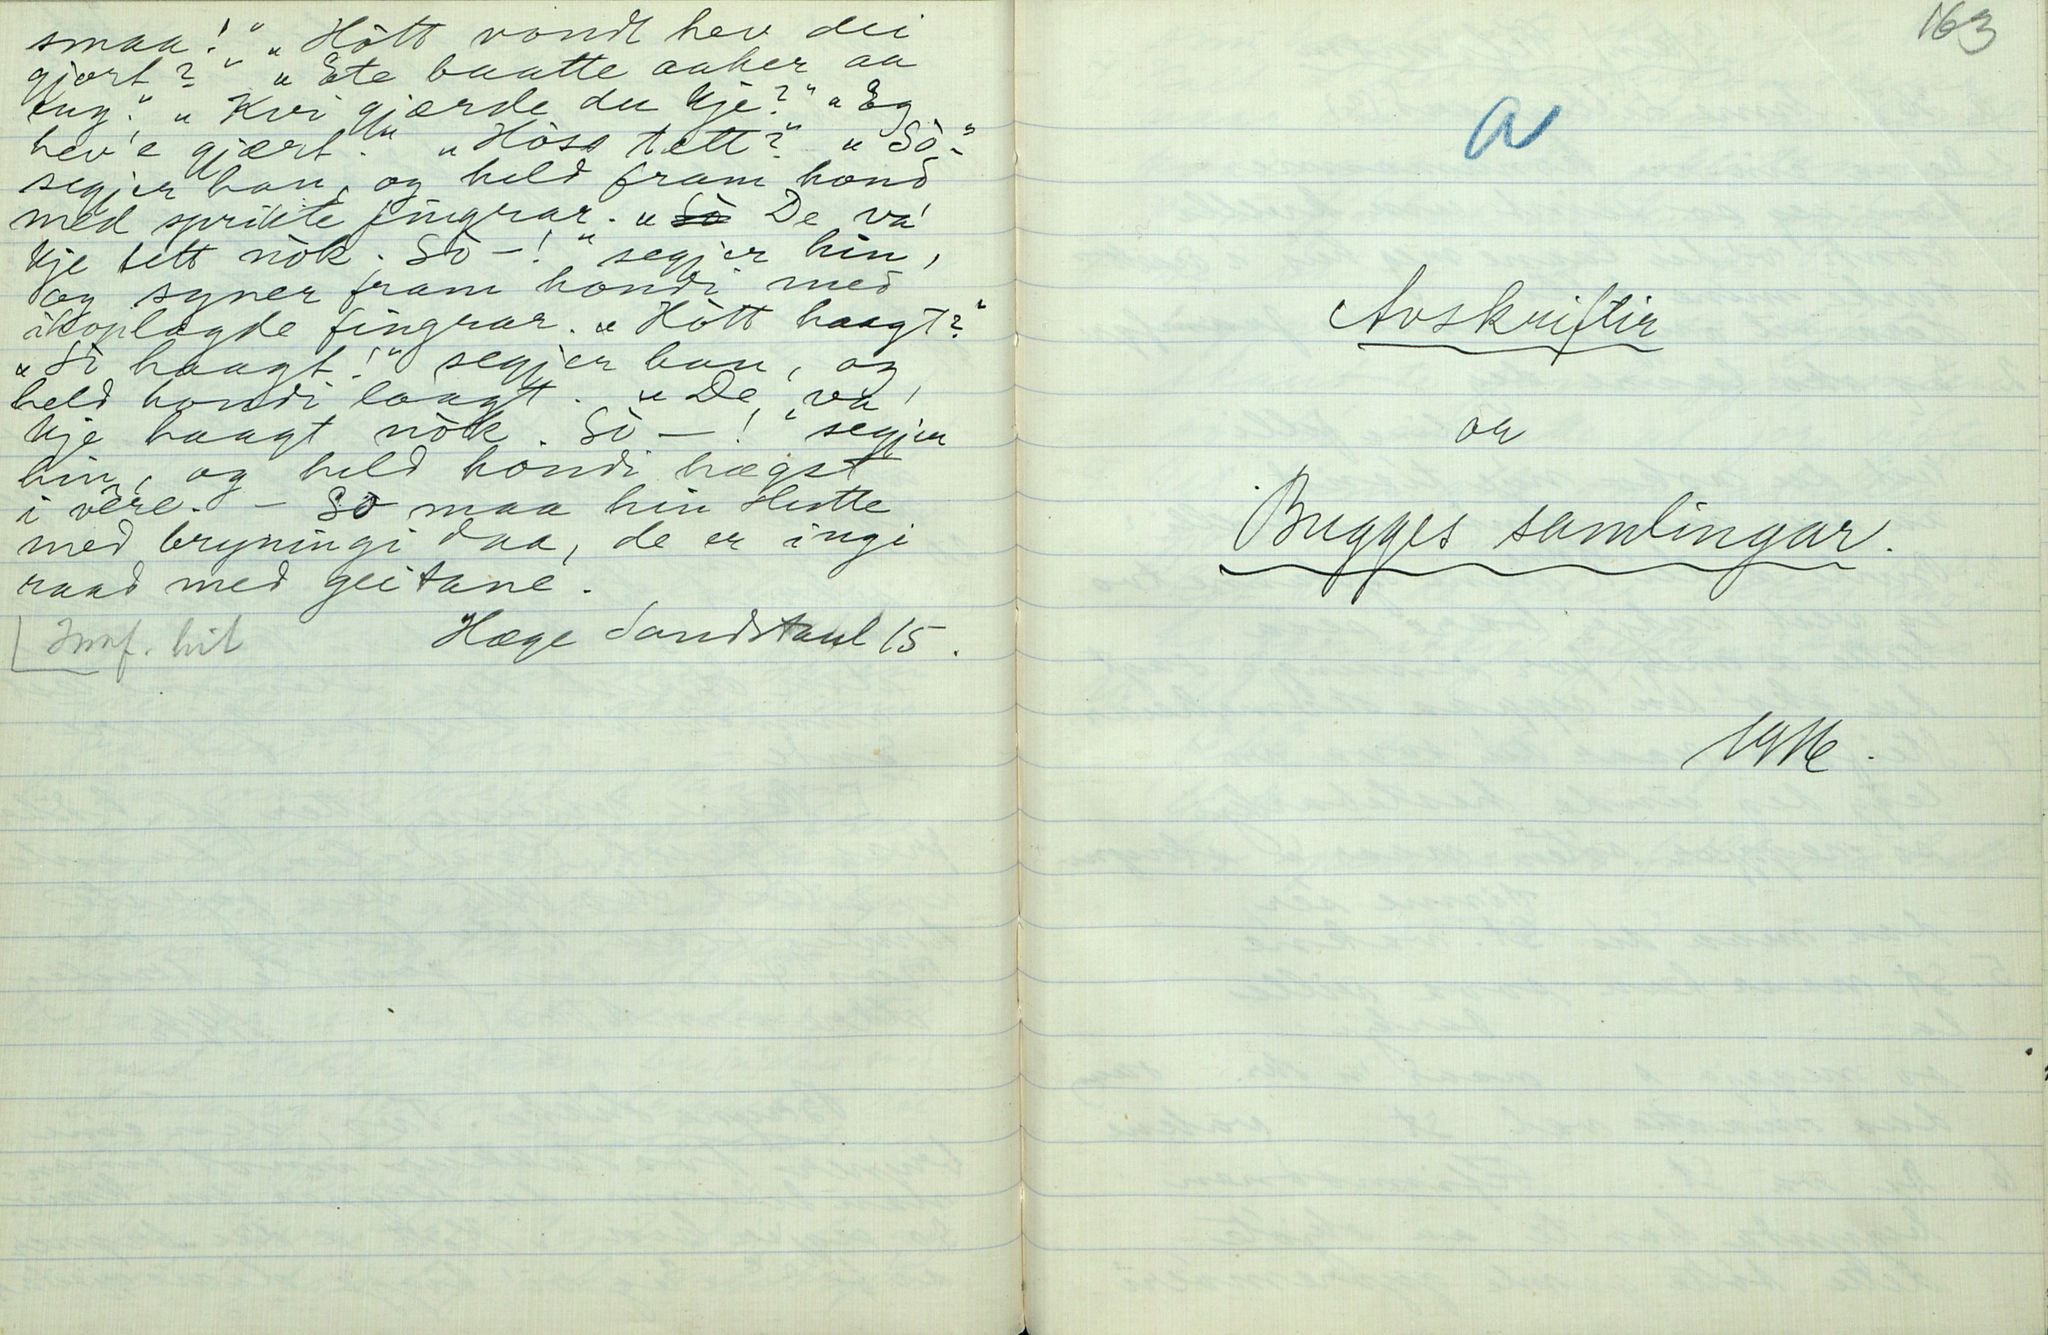 smaa!" „Hòtt vondt hev dei
gjort?" „Ete baatte aaker aa
eng." „Kvi gjærde du kje?" „Eg
hev'e gjært." „Hòss tett?" „Sò"
segjer han, og held fram hond
med sprikte fingrar. „Sò De va'
kje tett nòk. Sò —!" segjer hin,
og syner fram hondi med
ihoplagde fingrar. „Hòtt haagt?"
„Sò haagt!" segjer han, og
held hondi laagt. „De va'
kje haagt nòk. Sò —!" segjer
hin, og held hondi hægst
i vere. — So maa hin
med bryningi daa, de er ingi
raad med geitane.
Hæge Sandstaul 15.
hit
163
a
Avskriftir
or
Bugges samlingar.